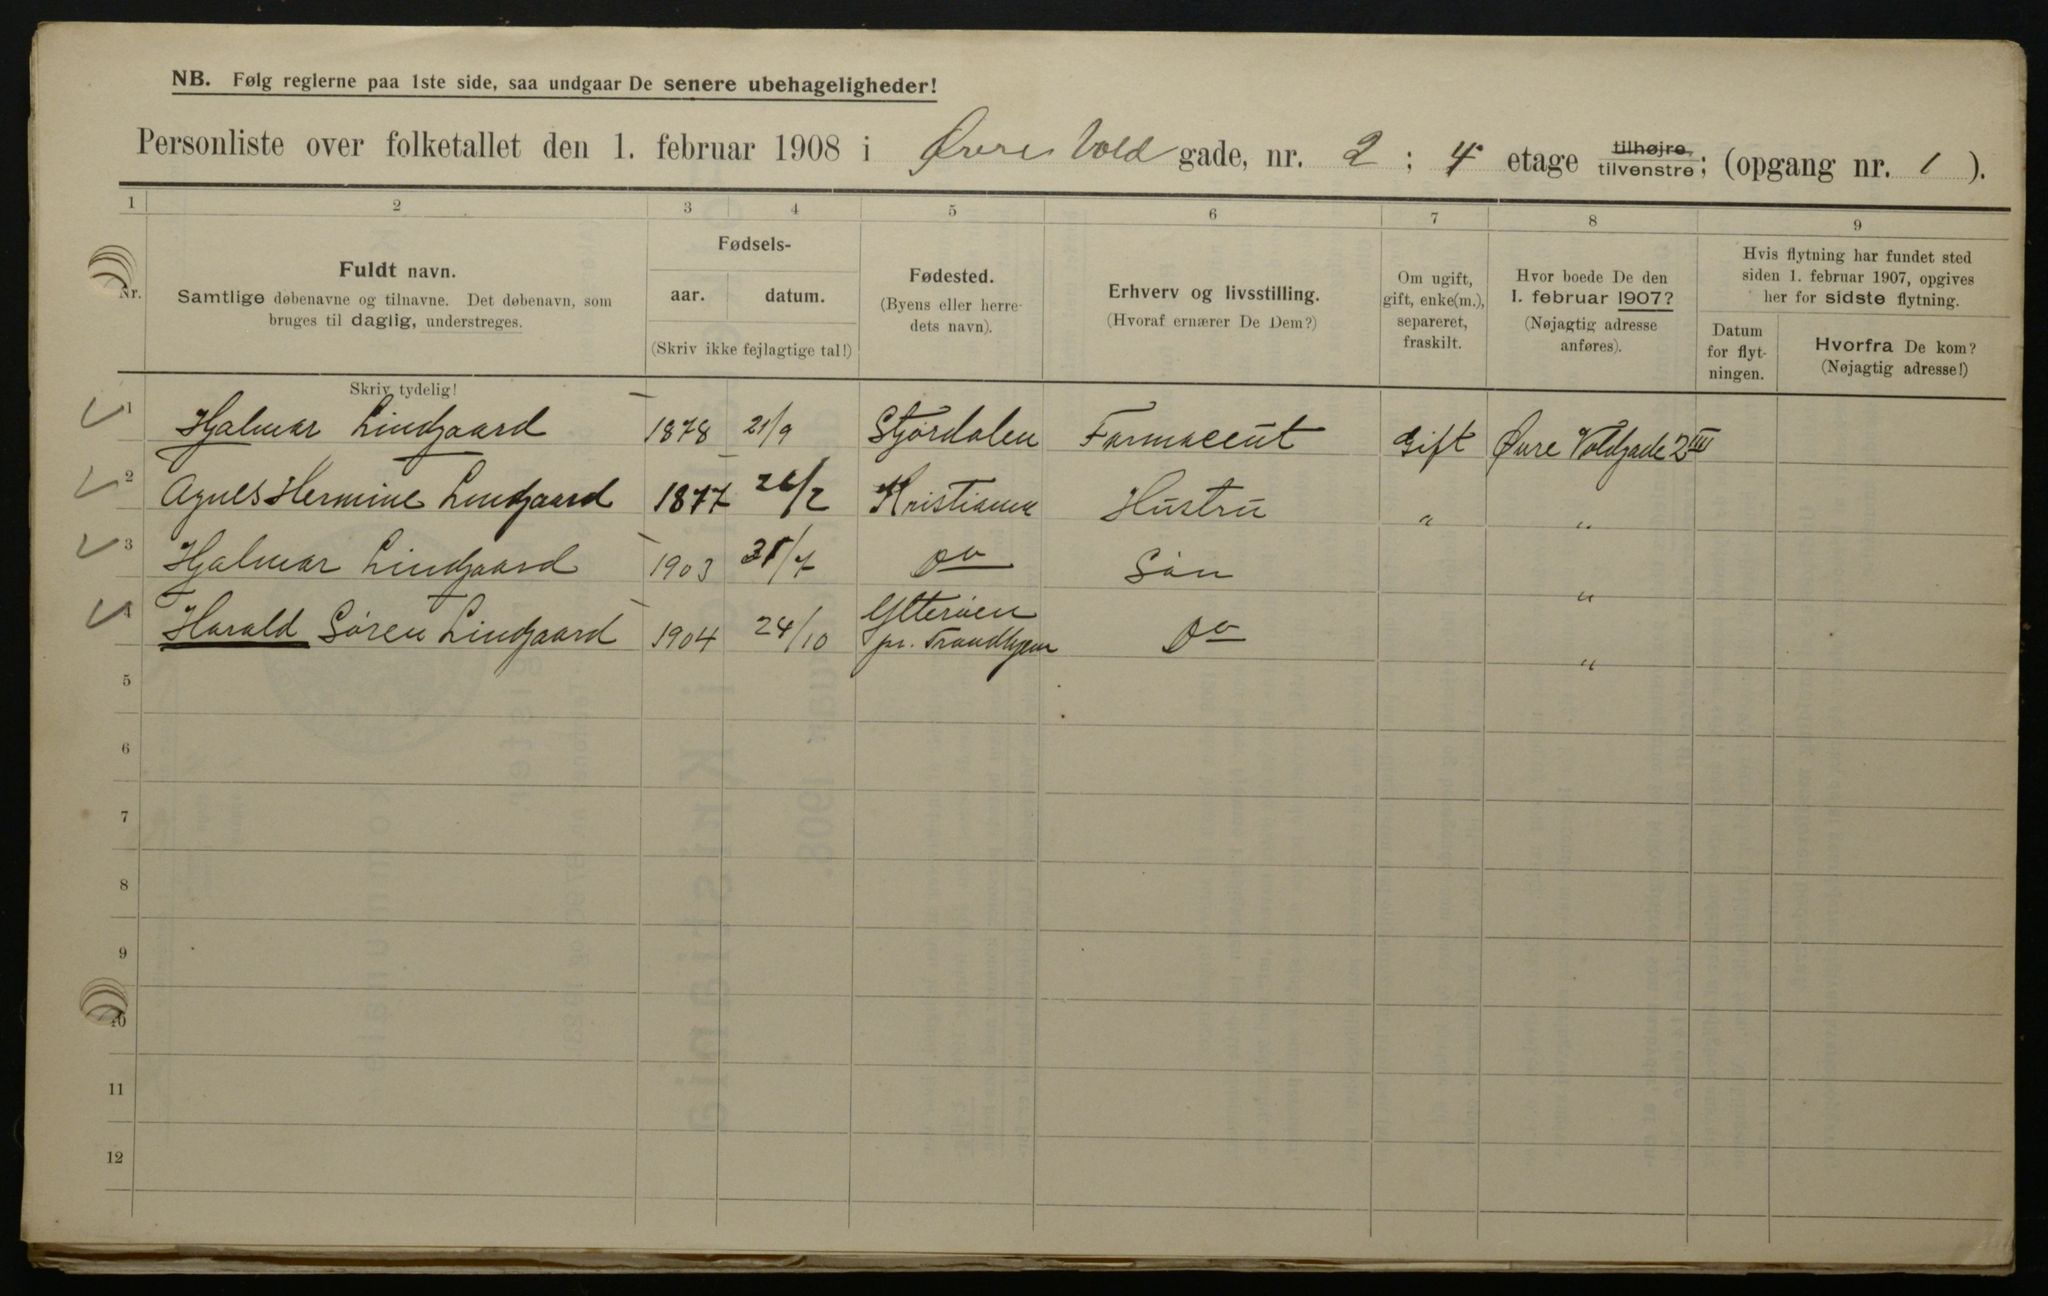 NB. Følg reglerne paa 1ste side, saa undgaar De senere ubehageligheder!
Personliste over folketallet den 1. februar 1908 i Øvre Vold gade, nr. 2 ; 4 etage tilhøjre, tilvenstre ; (opgang nr. 1 ).
1 2 3 4 5 6 7 8 9
Nr.
Fuldt navn.
Samtlige døbenavne og tilnavne. Det døbenavn, som
bruges til daglig, understreges.
Skriv tydelig!
Fødsels-
aar. datum.
(Skriv ikke fejlagtige tal!)
Fødested.
(Byens eller herre-
dets navn).
Erhverv og livsstilling.
(Hvoraf ernærer De Dem?)
Om ugift,
gift, enke(m.),
separeret,
fraskilt.
Hvor boede De den
1. februar 1907?
(Nøjagtig adresse
anføres).
Hvis flytning har fundet sted
siden 1. februar 1907, opgives
her for sidste flytning.
Datum
for flyt-
ningen.
Hvorfra De kom?
(Nøjagtig adresse!)
1 Hjalmar Lindgaard 1878 21/9 Stjørdalen Farmaceut Gift Øvre Voldgade 2 IIII
2 Agnes Hermine Lindgaard 1877 26/2 Kristiania Hustru " "
3 Hjalmar Lindgaard 1903 31/7 Do Søn "
4 Harald Søren Lindgaard 1904 24/10 Ytterøen pr. Trondhjem Do "
5
6
7
8
9
10
11
12